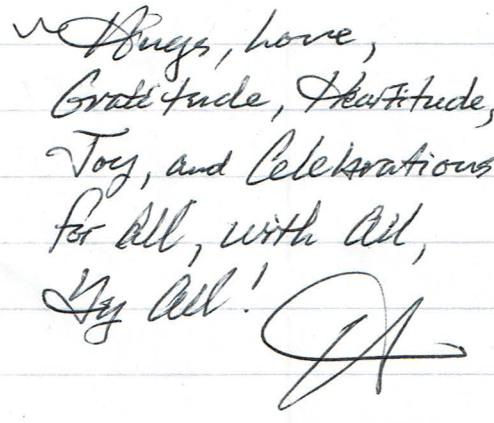 ~Hugs, Love,
Gratitude, Heartitude,
Joy, and Celebrations
for All, with All,
By All!